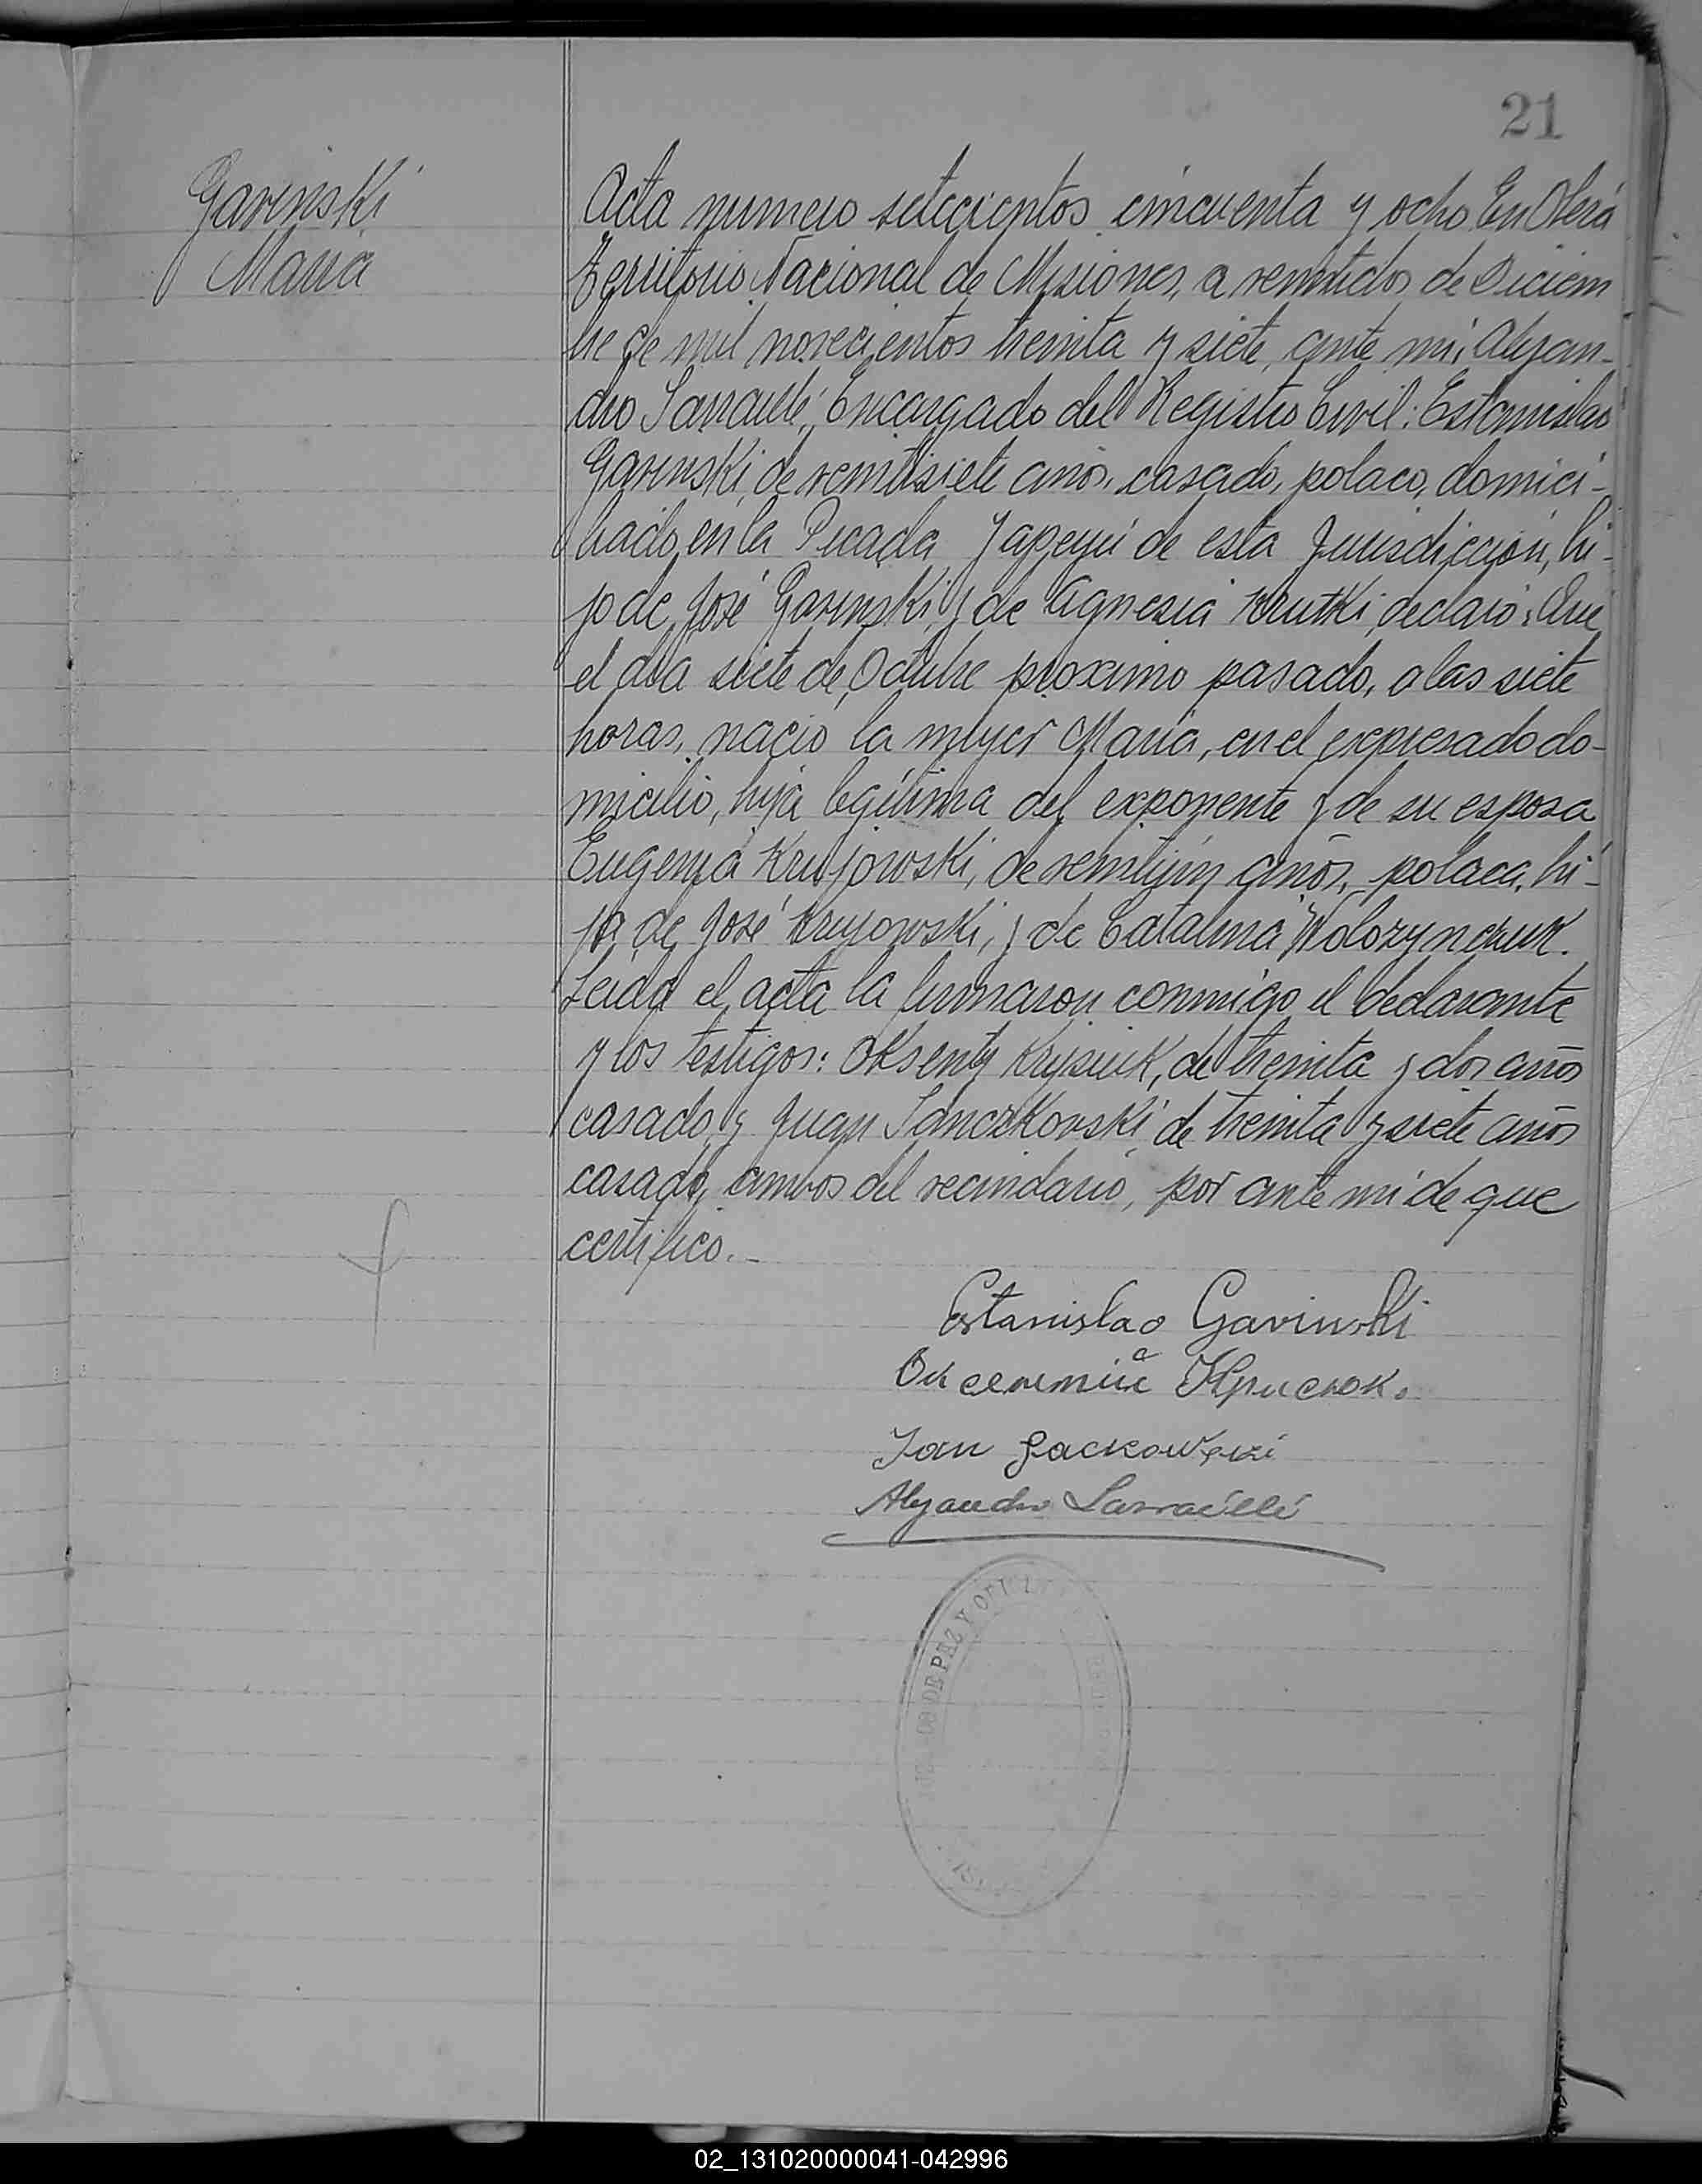 21
Gavinski
Maria
Acta numero setecientos cincuenta y ocho En Oberá
Territorio Nacional de Misiones, a veintidos de Diciem
bre de mil novecientos treinta y siete, ante mi, Alejan-
dro Sarraillé, Encargado del Registro Civil: Estanislao
Gavinski, de veintisiete años, casado, polaco, domici-
liado en la Picada Yapeyú de esta Jurisdicción, hi-
jo de José Gavinski, y de Agnesia Krutki, declaró: Que
el dia siete de Octubre proximo pasado, a las siete
horas, nació la mujer Maria, en el expresado do-
micilio, hija legitima del exponente y de su esposa
Eugenia Krujowski, de veintiún años, polaca, hi-
ja de José Krujowski, y de Catalina Wolozynczuk.
Leida el acta la firmaron conmigo el declarante
y los testigos: Oksenty Krysiuk, de treinta y dos años
casado y Juan Sanczkovski, de treinta y siete años
casado, ambos del vecindario, por ante mi de que
certifico.-
Estanislao Gavinski
Крисюк.
Jan Jackowski
Alejandro Sarraillé
DE PAZ Y OFI
02_131020000041-042996